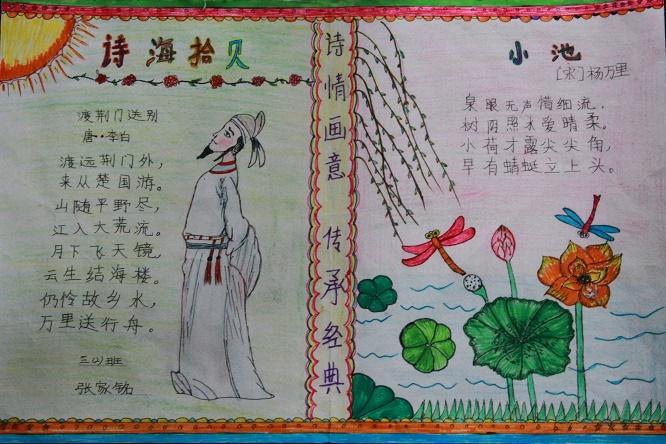 诗海拾贝
渡荆门送别
唐·李白
渡远荆门外，
来从楚国游。
山随平野尽，
江入大荒流。
月下飞天镜，
云生结海楼。
仍怜故乡水，
万里送行舟。
三(1)班
张家铭
诗情画意 传承经典
小池
［宋］杨万里
泉眼无声惜细流，
树阴照水爱晴柔。
小荷才露尖尖角，
早有蜻蜓立上头。